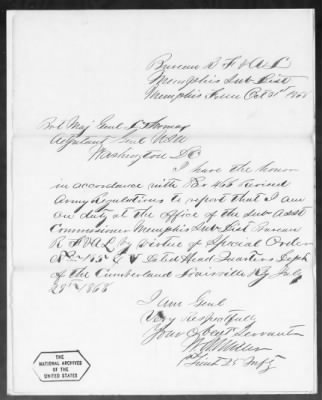 Bureau R F & A L
Memphis Sub Dist
Memphis Tenn Oct 31st 1868
Bvt Maj Genl L Thomas
Adjutant Genl USA
Washington DC
I have the honor
in accordance with Par 466 revised
Army Regulations to report that I am
on duty at the office of the Sub Asst
Commissioner Memphis Sub Dist Bureau
R F & A L by virtue of Special Order
No 155 dated Head Quarters Dept
of the Cumberland Louisville Ky July
29th 1868
I am Genl
Very Respectfully
Your Obedt Servant
1st Lieut 25 Infy
THE
NATIONAL ARCHIVES
OF THE
UNITED STATES